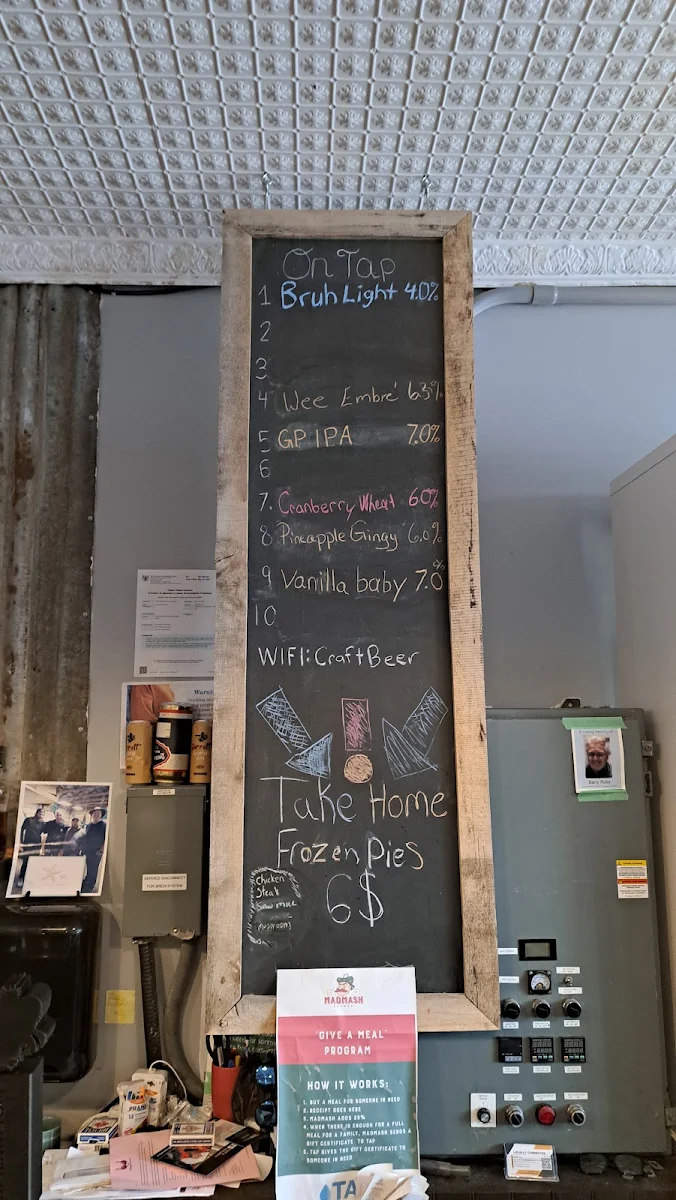 On Tap
1 Bruh Light 4.0%
2
3
4 Wee Embré 6.3%
5 GP IPA 7.0%
6
7. Cranberry Wheat 6.0%
8 Pineapple Gingy 6.0%
9 Vanilla baby 7.0%
10
WIFI: CraftBeer
Take Home
Frozen Pies
6$
Chicken
Steak
Mushroom
SERVICE DISCONNECT
FOR BREW SYSTEM
Warning
Barry Roby
MADMASH
'GIVE A MEAL'
PROGRAM
HOW IT WORKS:
1. BUY A MEAL FOR SOMEONE IN NEED
2. RECEIPT GOES HERE
3. MADMASH ADDS 25%
4. WHEN THERE IS ENOUGH FOR A FULL
MEAL FOR A FAMILY, MADMASH SENDS A
GIFT CERTIFICATE TO TAP
5. TAP GIVES THE GIFT CERTIFICATE TO
SOMEONE IN NEED
TA